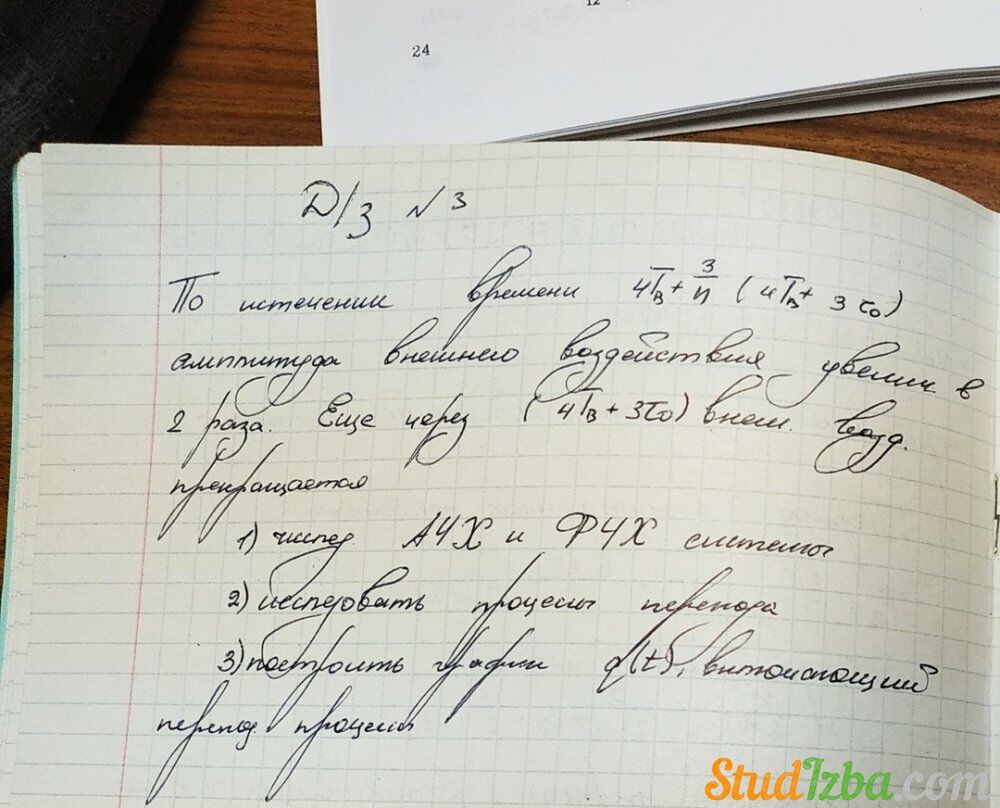 12
24
Д/з №3
По истечении времени 4Tв + 3/n (4Tв + 3τ0)
амплитуда внешнего воздействия увелич. в
2 раза. Еще через (4Tв + 3τ0) внеш. возд.
прекращается
1) исслед. АЧХ и ФЧХ системы
2) исследовать процессы перехода
3) построить график q(t), включающий
переход. процессы
StudIzba.com